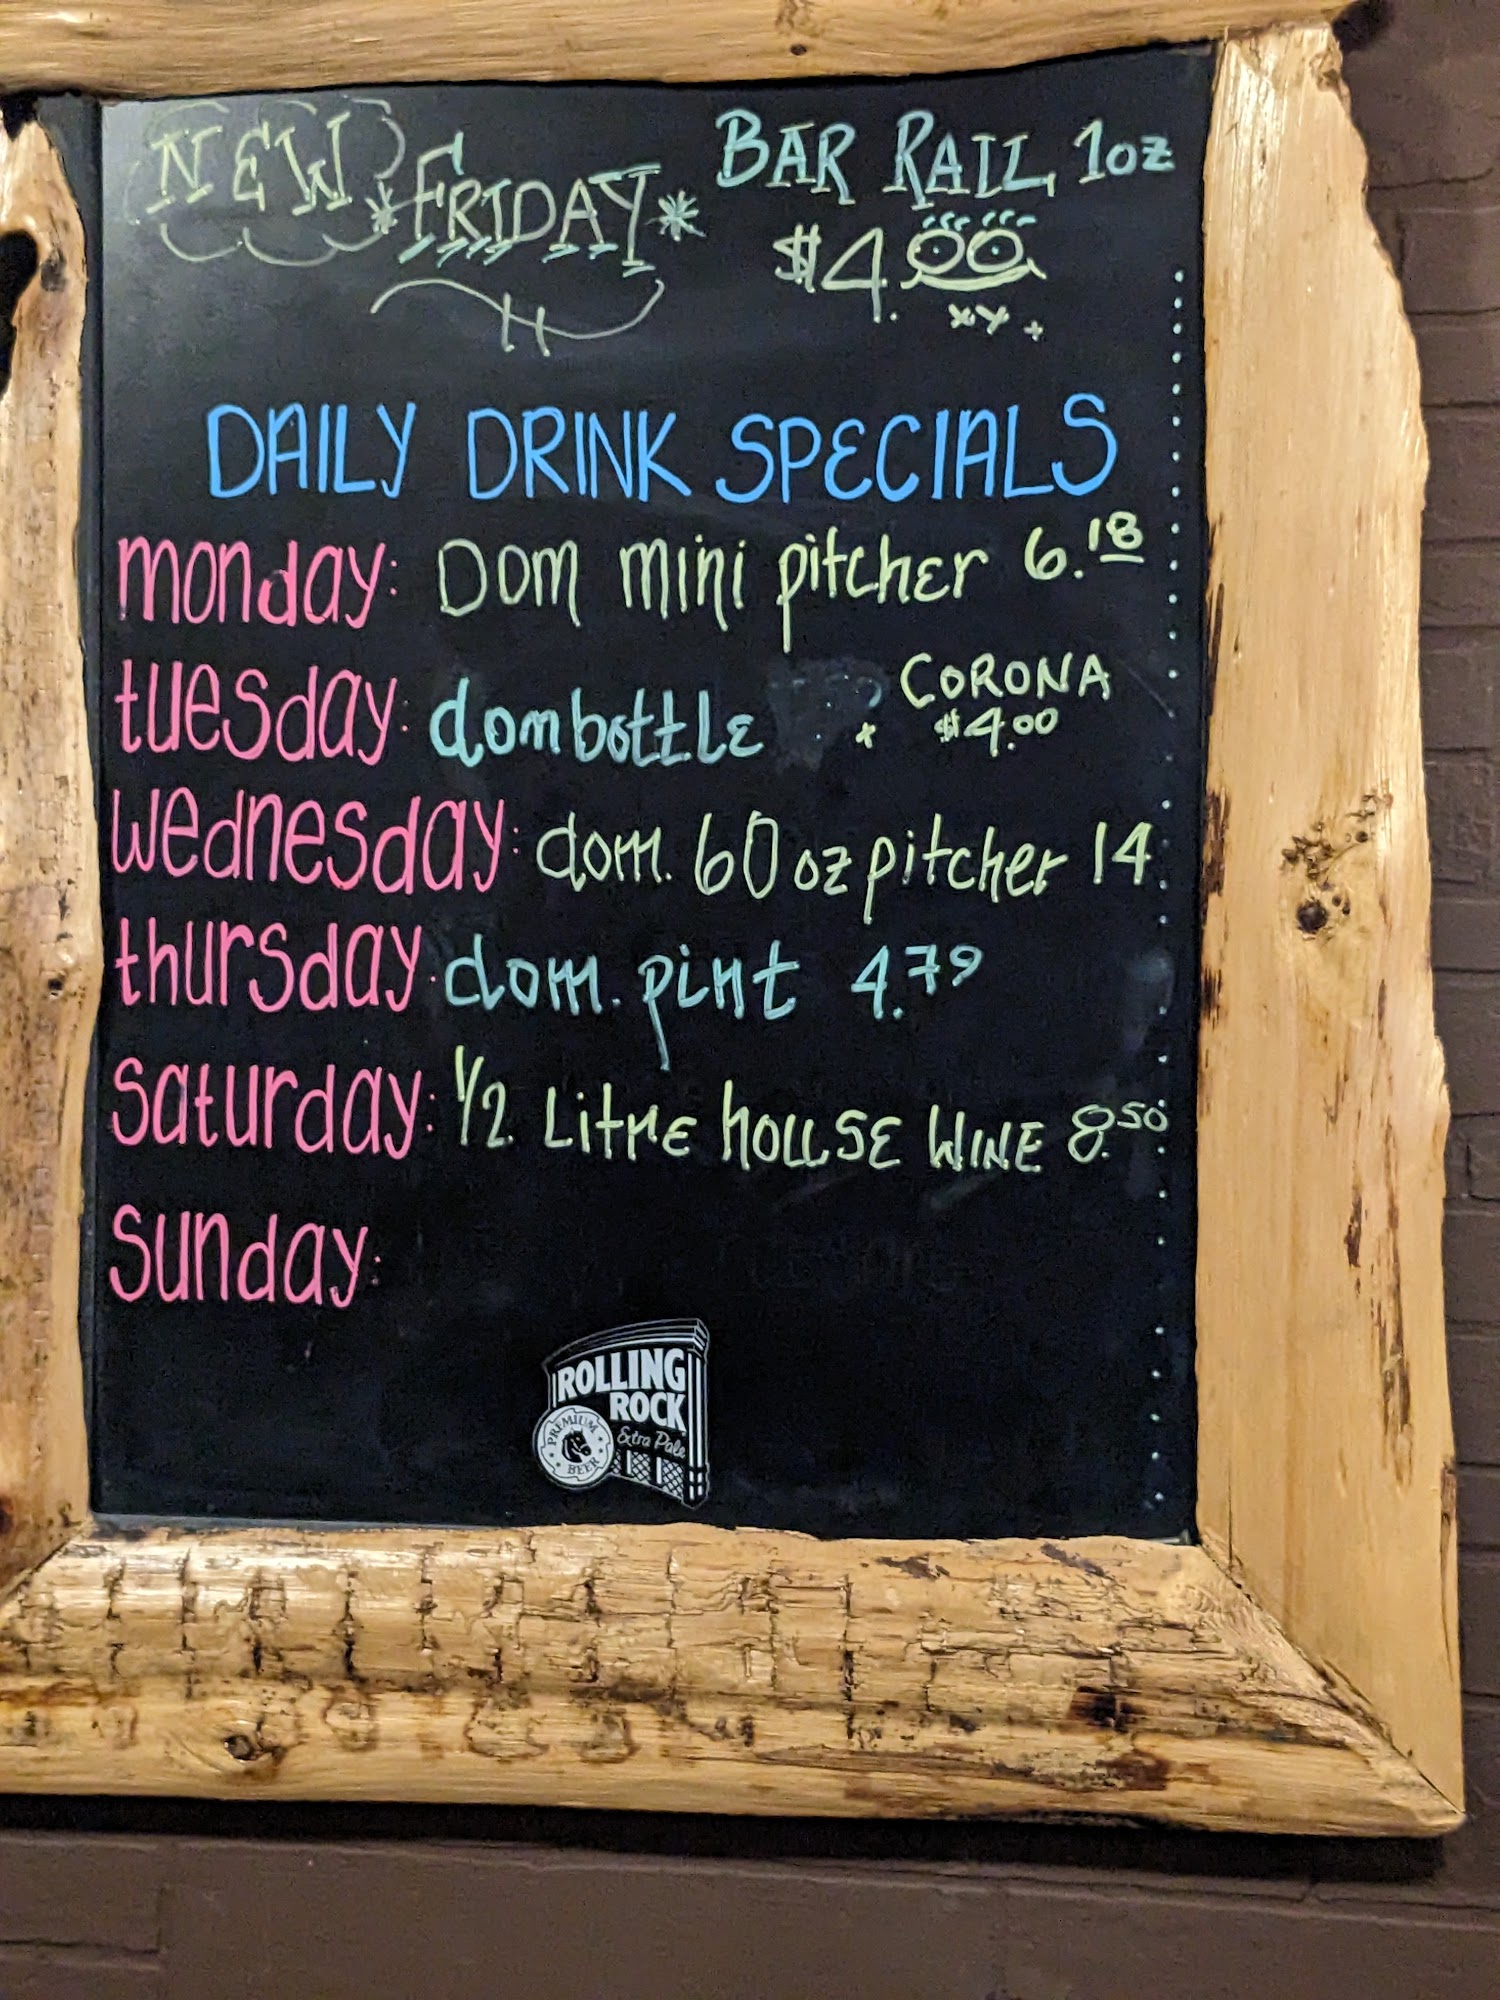 NEW *FRIDAY* BAR RAIL 1oz
$4.00
xy +
DAILY DRINK SPECIALS
monday: Dom mini pitcher 6.18
tuesday: dom bottle + CORONA
$4.00
wednesday: dom. 60 oz pitcher 14
thursday: dom. pint 4.79
saturday: 1/2 Litre house WINE 8.50
sunday:
ROLLING
ROCK
Extra Pale
PREMIUM
BEER